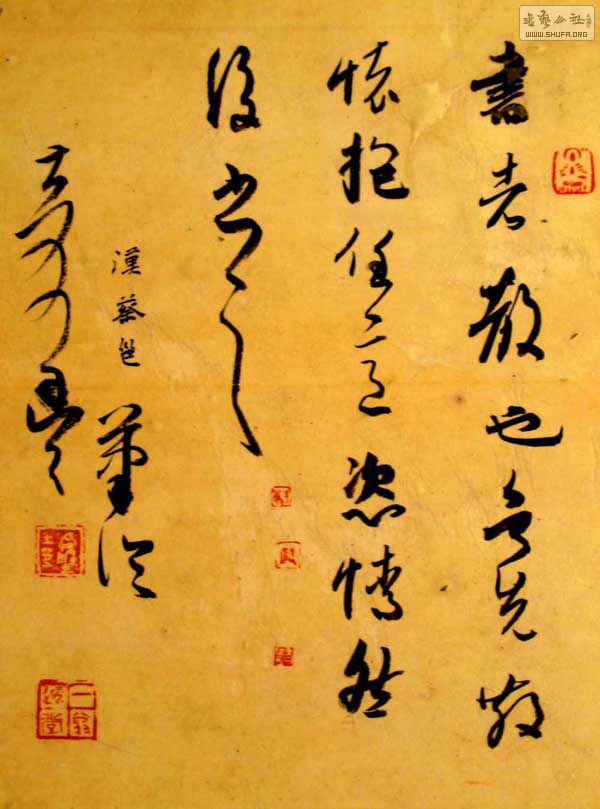 書者散也欲先散
懷抱任意恣情然
後書之
漢蔡邕筆論
书艺公社
WWW.SHUFA.ORG